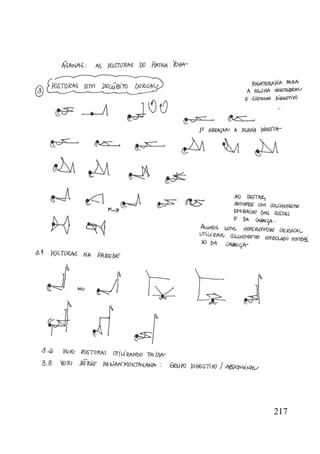 ÁSANAS: AS POSTURAS DO HATHA YOGA
③ POSTURAS EM DECÚBITO DORSAL
YOGATERAPIA PARA
A COLUNA VERTEBRAL
E SISTEMA DIGESTIVO
SE ABRAÇAM A PERNA DIREITA
AO DEITAR,
SEMPRE UM COLCHONETE
EMBAIXO DAS COSTAS
E DA CABEÇA.
ALUNOS COM HIPERLORDOSE CERVICAL,
UTILIZARÃO COLCHONETE
DA CABEÇA
3.1 POSTURAS NA PAREDE
OU
3.2 POSTURAS UTILIZANDO
3.3 SÉRIE PAWANMUKTASANA: GRUPO DIGESTIVO / ABDOMINAL
217